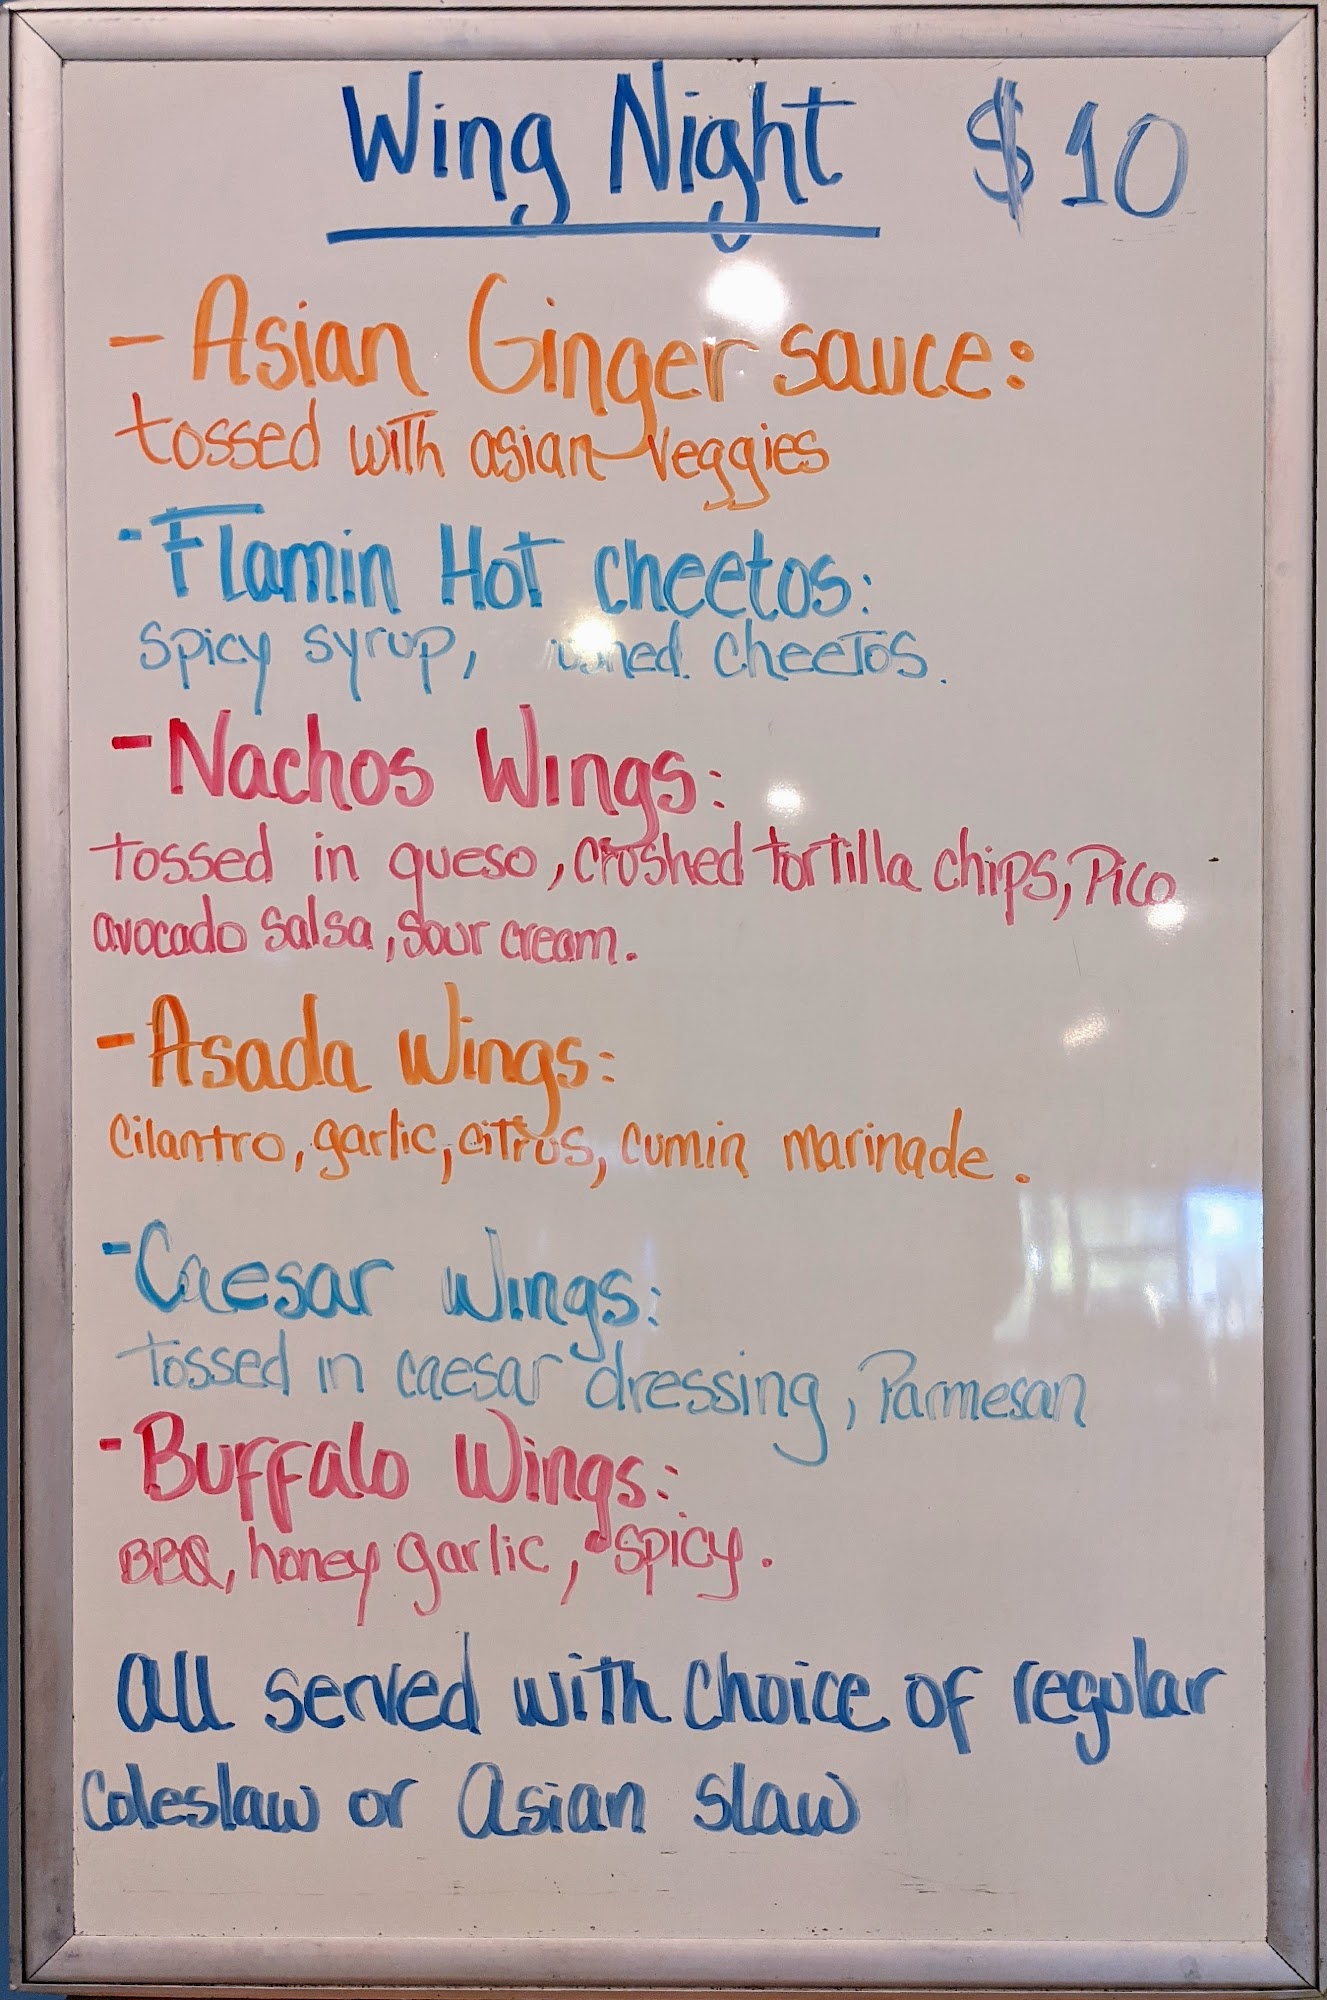 Wing Night $10
- Asian Ginger sauce:
tossed with asian veggies
- Flamin Hot cheetos:
spicy syrup, cheetos.
- Nachos Wings:
tossed in queso, crushed tortilla chips, Pico
avocado salsa, sour cream.
- Asada Wings:
cilantro, garlic, citrus, cumin marinade.
- Caesar Wings:
tossed in caesar dressing, Parmesan
- Buffalo Wings:
BBQ, honey garlic, spicy.
all served with choice of regular
Coleslaw or Asian slaw